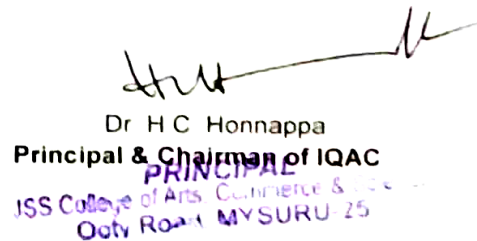 Dr H C Honnappa
Principal & Chairman of IQAC
PRINCIPAL
JSS College of Arts, Commerce &
Ooty Road MYSURU-25